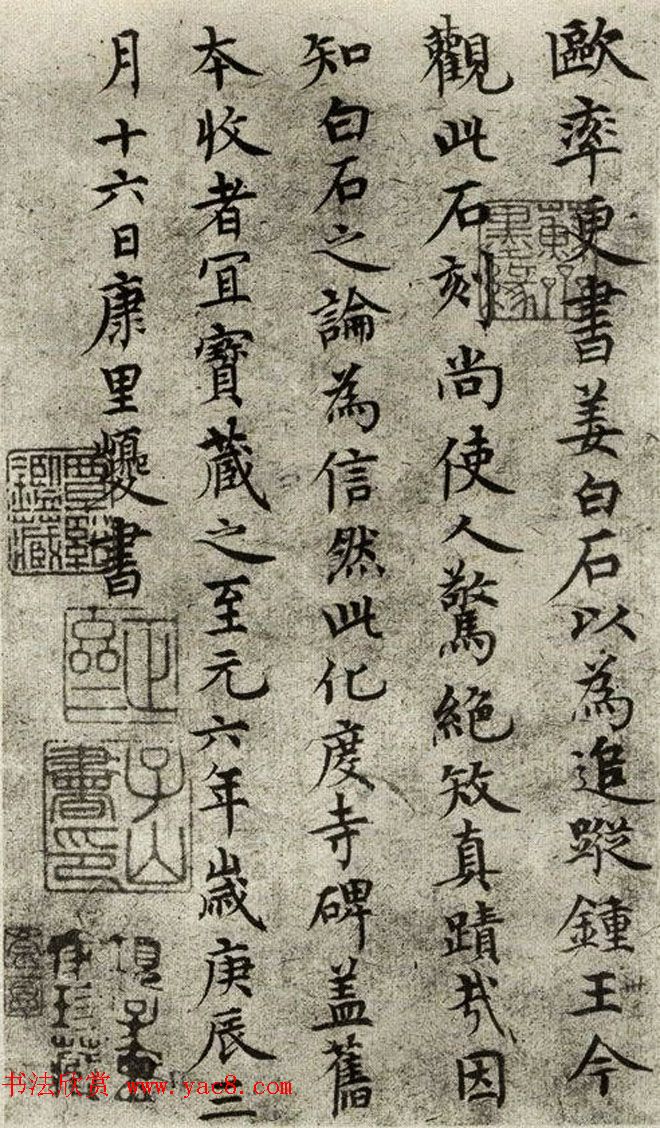 歐率更書姜白石以為追蹤鍾王今
觀此石刻尚使人驚絕矧真蹟哉因
知白石之論為信然此化度寺碑蓋舊
本收者宜寶藏之至元六年歲庚辰二
月十六日康里巙書
正齋
子山書印
書法欣賞 www.yac8.com